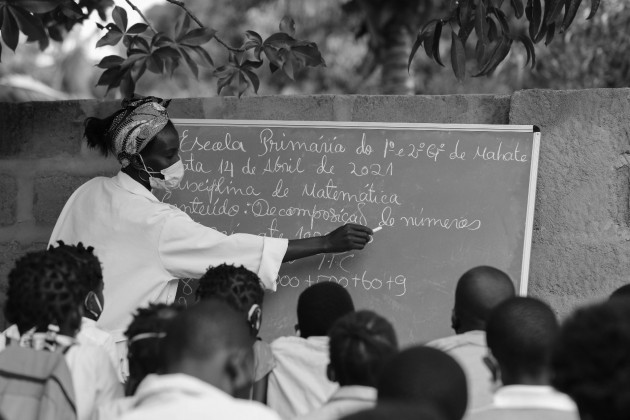 Escola Primária do 1º e 2º G. de Mahate
ta 14 de Abril de 2021
isciplina de Matemática
onteúdo: Decomposiçaõ de números
até
TPC
00+500+60+9